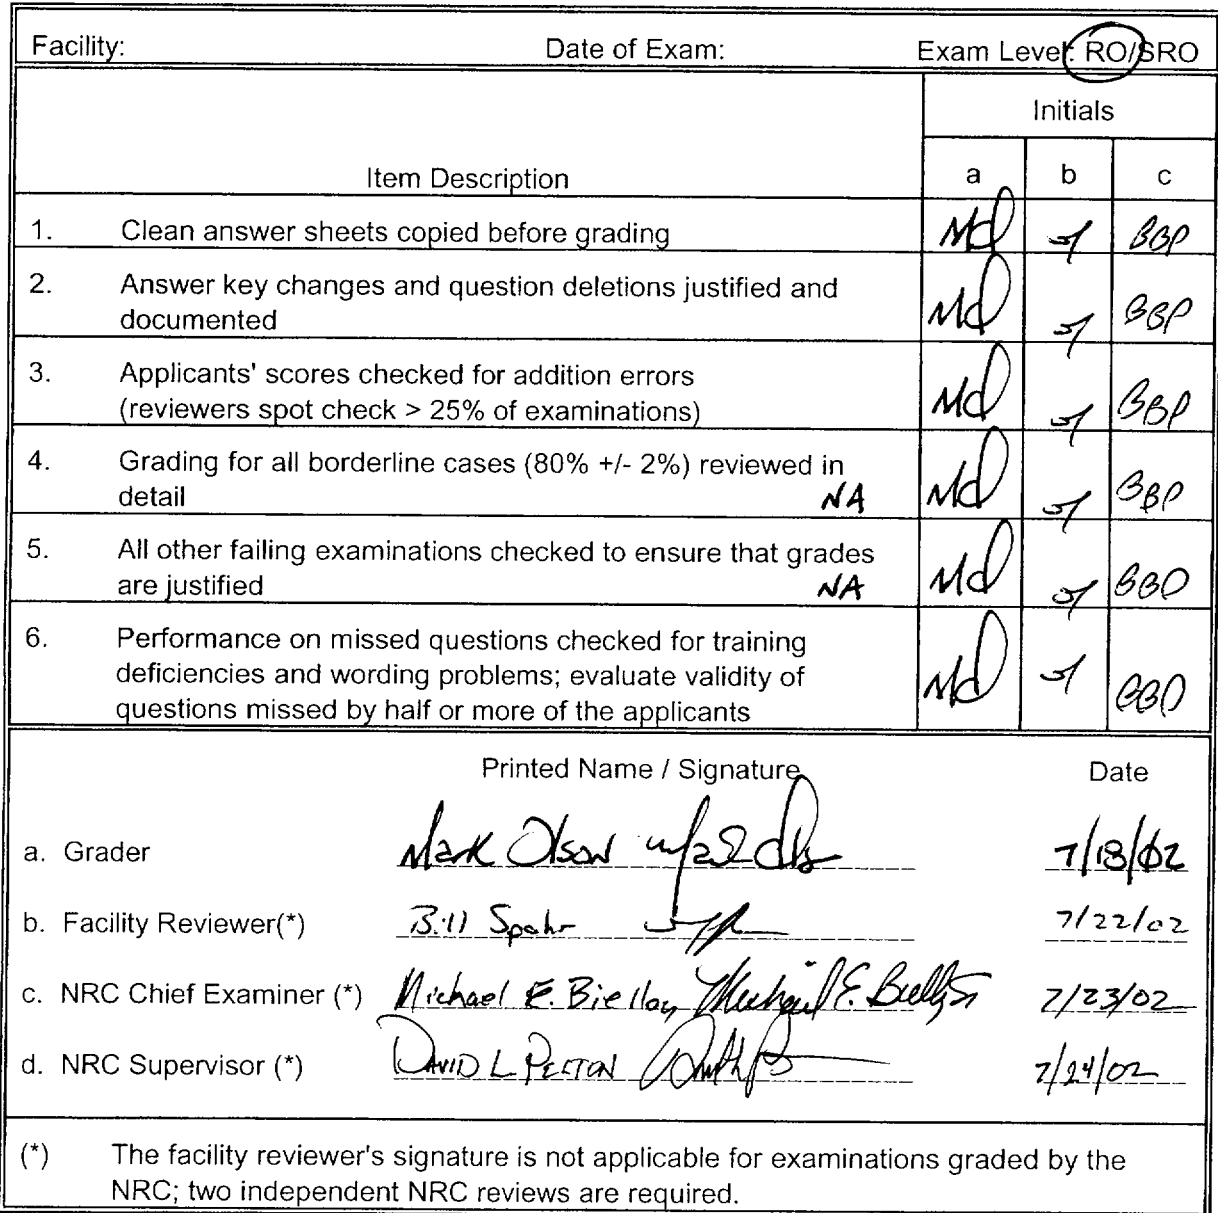 Facility: Date of Exam: Exam Level: RO/SRO
Initials
Item Description a b c
1. Clean answer sheets copied before grading BBP
2. Answer key changes and question deletions justified and
documented BBP
3. Applicants' scores checked for addition errors
(reviewers spot check > 25% of examinations) BBP
4. Grading for all borderline cases (80% +/- 2%) reviewed in
detail NA BBP
5. All other failing examinations checked to ensure that grades
are justified NA BBP
6. Performance on missed questions checked for training
deficiencies and wording problems; evaluate validity of
questions missed by half or more of the applicants BBP
Printed Name / Signature Date
a. Grader Mark Olson 7/18/02
b. Facility Reviewer(*) Bill Spahr 7/22/02
c. NRC Chief Examiner (*) Michael E. Bielby 7/23/02
d. NRC Supervisor (*) DAVID L PELTON 7/24/02
(*) The facility reviewer's signature is not applicable for examinations graded by the
NRC; two independent NRC reviews are required.